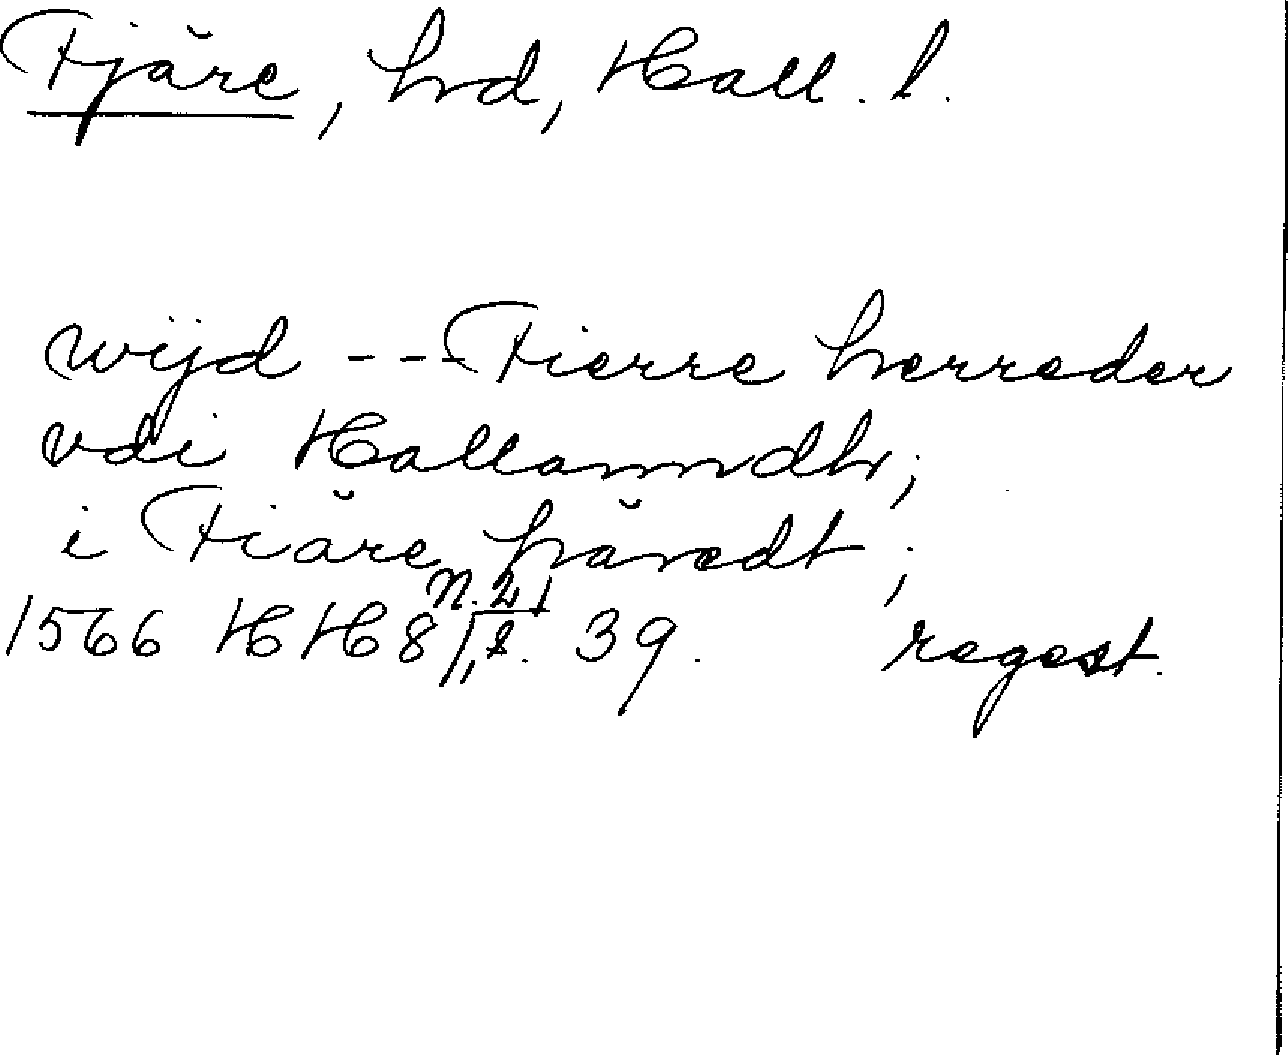 Fjäre, hrd, Hall. l.
wijd --- Fierre herreder
vdi Hallanndh;
i Fiäre häredt;
n. 2,
1566 HH 8/1, s. 39. regest.